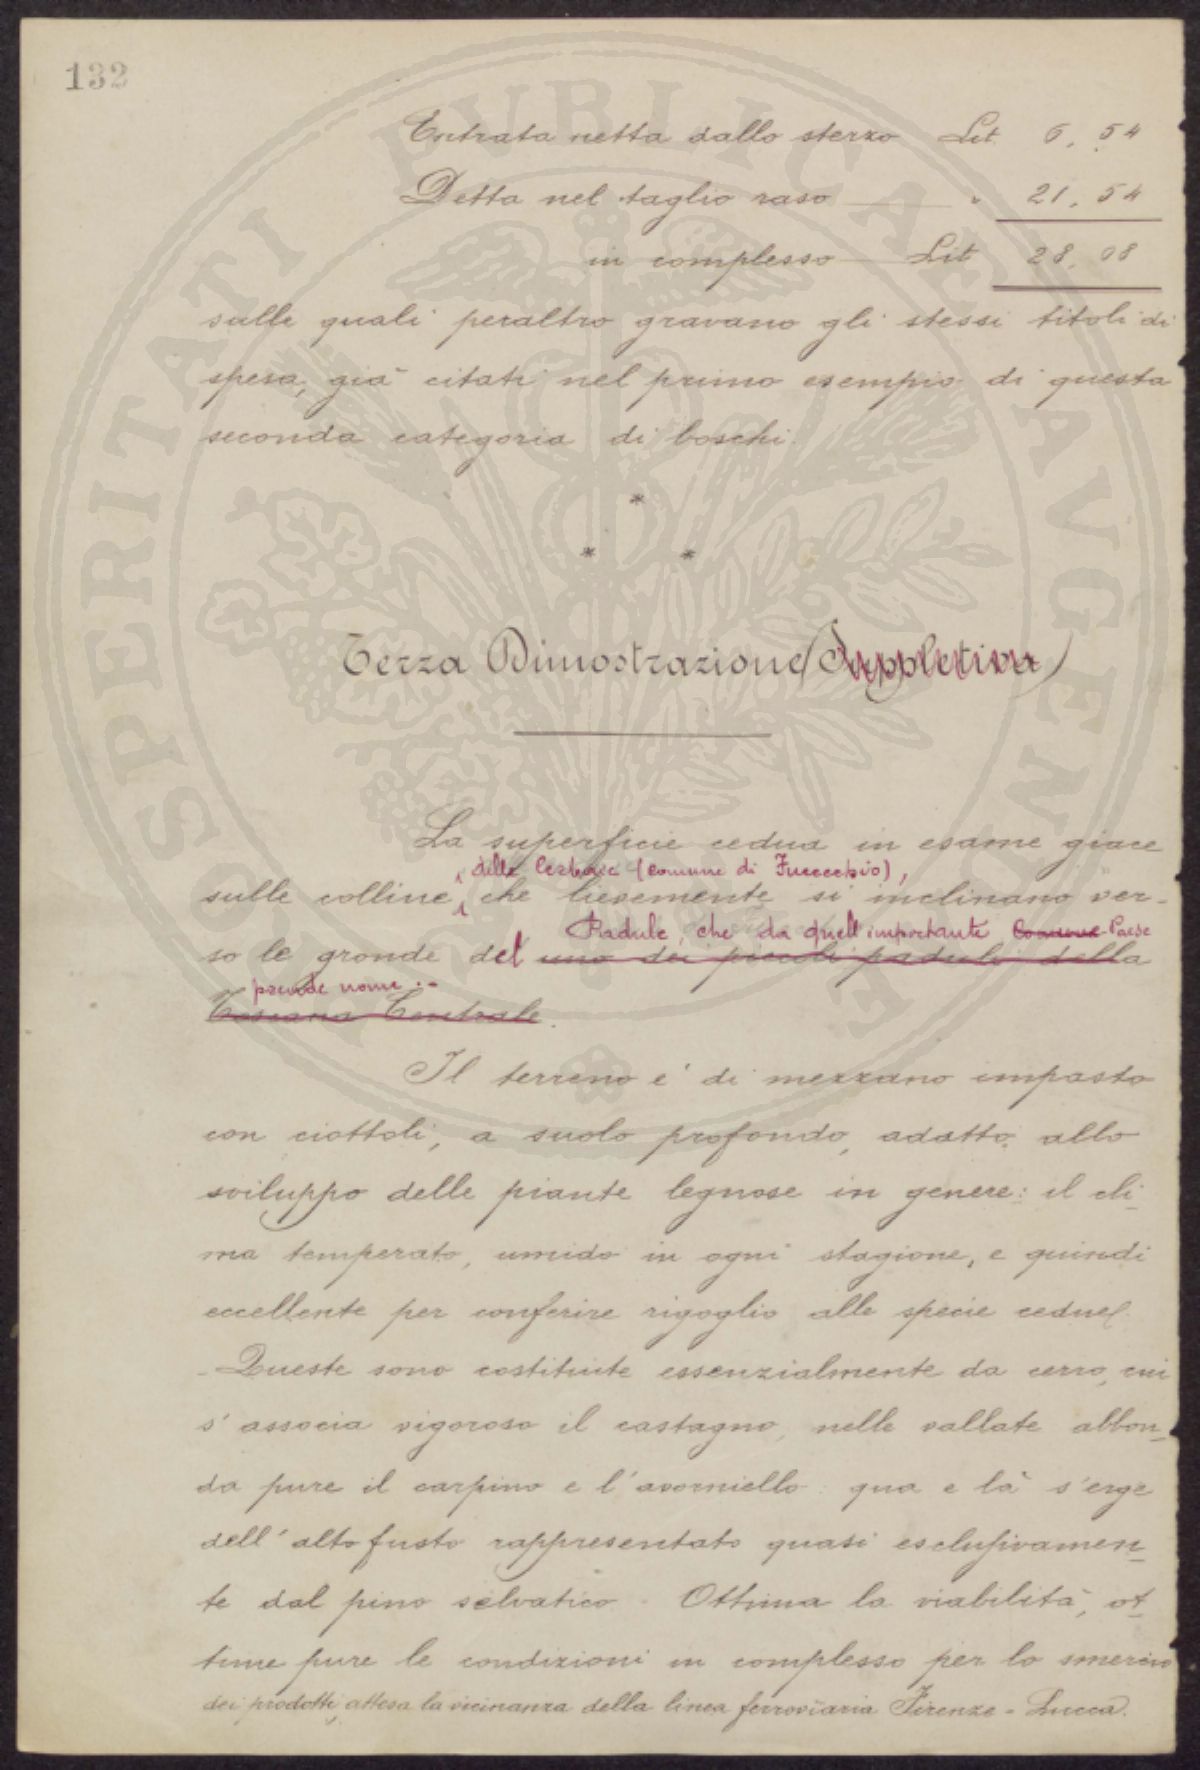 132
Entrata netta dallo sterzo Lit. 6,54
Detta nel taglio raso " 21,54
in complesso Lit 28,08
sulle quali peraltro gravano gli stessi titoli di
spesa, già citati nel primo esempio di questa
seconda categoria di boschi.
*
* *
Terza Dimostrazione (Suppletiva)
La superficie cedua in esame giace
delle Cerbaie (comune di Fucecchio),
sulle colline, che lievemente si inclinano ver-
Padule, che da quell'importante Comune Paese
so le gronde del uno dei piccoli paduli della
prende nome.-
Toscana Centrale.
Il terreno è di mezzano impasto
con ciottoli, a suolo profondo, adatto allo
sviluppo delle piante legnose in genere: il cli-
ma temperato, umido in ogni stagione, e quindi
eccellente per conferire rigoglio alle specie cedue.
- Queste sono costituite essenzialmente da cerro, cui
s'associa vigoroso il castagno, nelle vallate abbon-
da pure il carpino e l'avorniello: qua e là s'erge
dell'alto fusto rappresentato quasi esclusivamen-
te dal pino selvatico. Ottima la viabilità, ot-
time pure le condizioni in complesso per lo smercio
dei prodotti, attesa la vicinanza della linea ferroviaria Firenze - Lucca.
PROSPERITATI PUBLICAE AUGENDAE